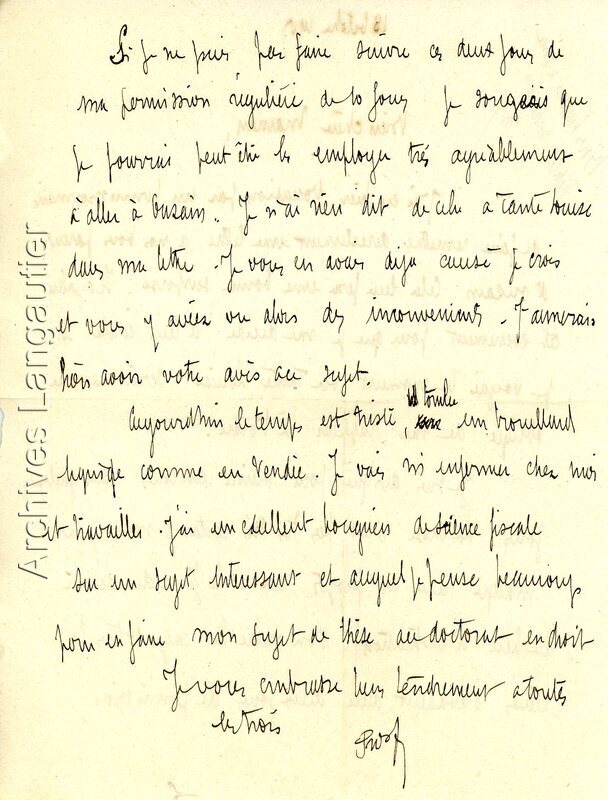 Si je ne puis pas faire suivre ces deux jours de
ma permission régulière de 10 jours je songeais que
je pourrais peut être les employer très agréablement
à aller à Busain. Je n'ai rien dit de cela a tante Louise
dans ma lettre. Je vous en avais deja causé je crois
et vous y aviez vu alors des inconvenients. J'aimerais
bien avoir votre avis au sujet.
Aujourdhui le temps est triste, il tombe un brouillard
liquide comme en Vendée. Je vais m'enfermer chez moi
et travailler. J'ai un excellent bouquin de science fiscale
sur un sujet interessant et auquel je pense beaucoup
pour en faire mon sujet de thèse au doctorat en droit
Je vous embrasse bien tendrement a toutes
les trois
Archives Langautier